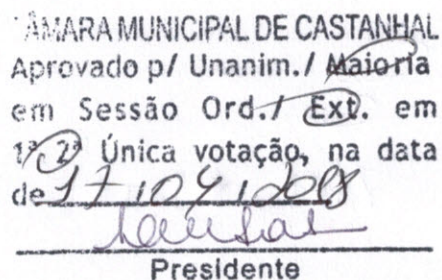 CÂMARA MUNICIPAL DE CASTANHAL
Aprovado p/ Unanim./ Maioria
em Sessão Ord./ Ext. em
1ª 2ª Única votação, na data
de 17 / 04 / 2008
Presidente